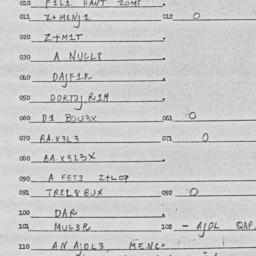 010 FILI HANT ZOMI
011 Z+MENJ1 012 O
020 Z+M1T
030 A NUGL8
040 DAJF1K
050 DOKTOJ R1M
060 D1 BOU3X 061 O
070 BA.X3L3 071 O
080 BA.X3L3X
090 A FET3 Z+L
091 TREL8 BUX 092 O
100 DAR
101 MUG3R 102 - AJOL QAP
110 AN AJOL3, MENG+